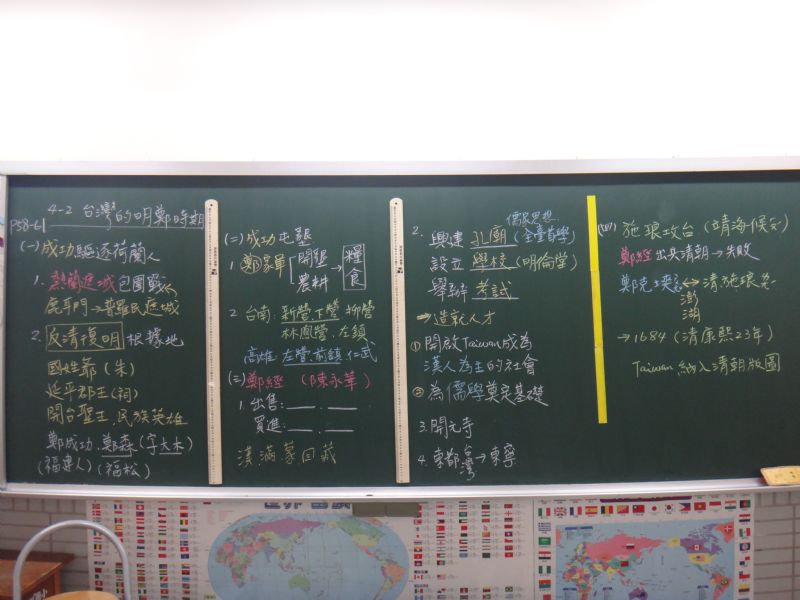 P58-61
4-2 台灣的明鄭時期
(一)成功驅逐荷蘭人
1. 熱蘭遮城包圍戰
鹿耳門→普羅民遮城
2. 反清復明 根據地
國姓爺（朱）
延平郡王（祠）
開台聖王、民族英雄
鄭成功：鄭森（字大木）
（福建人）（福松）
(二)成功屯墾
1. 鄭家軍 開墾 農耕 → 糧食
2 台南：新營、下營、柳營
林鳳營、左鎮
高雄：左營、前鎮、仁武
(三)鄭經（陳永華）
1. 出售：
買進：
漢滿蒙回藏
2. 儒家思想
興建 孔廟（全臺首學）
設立 學校（明倫堂）
舉辦 考試
→造就人才
① 開啟Taiwan成為
漢人為主的社會
② 為儒學奠定基礎
3. 開元寺
4. 東都 台灣→東寧
(四) 施琅攻台（靖海侯）
鄭經出兵清朝→失敗
鄭克塽 ↔ 清施琅
澎湖
→1684（清康熙23年）
Taiwan納入清朝版圖
世界